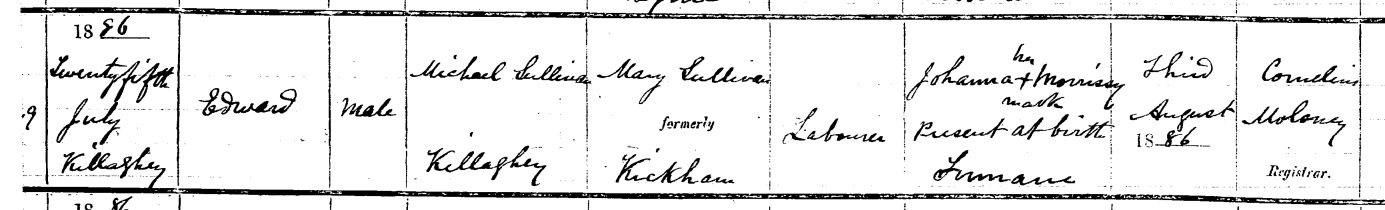 1886
Twenty fifth
July
Killaghy
9
Edward
Male
Michael Sullivan
Killaghy
Mary Sullivan
formerly
Kickham
Labourer
her
Johanna + Morrissy
mark
Present at birth
Third
August
1886
Cornelius
Moloney
Registrar.
1886